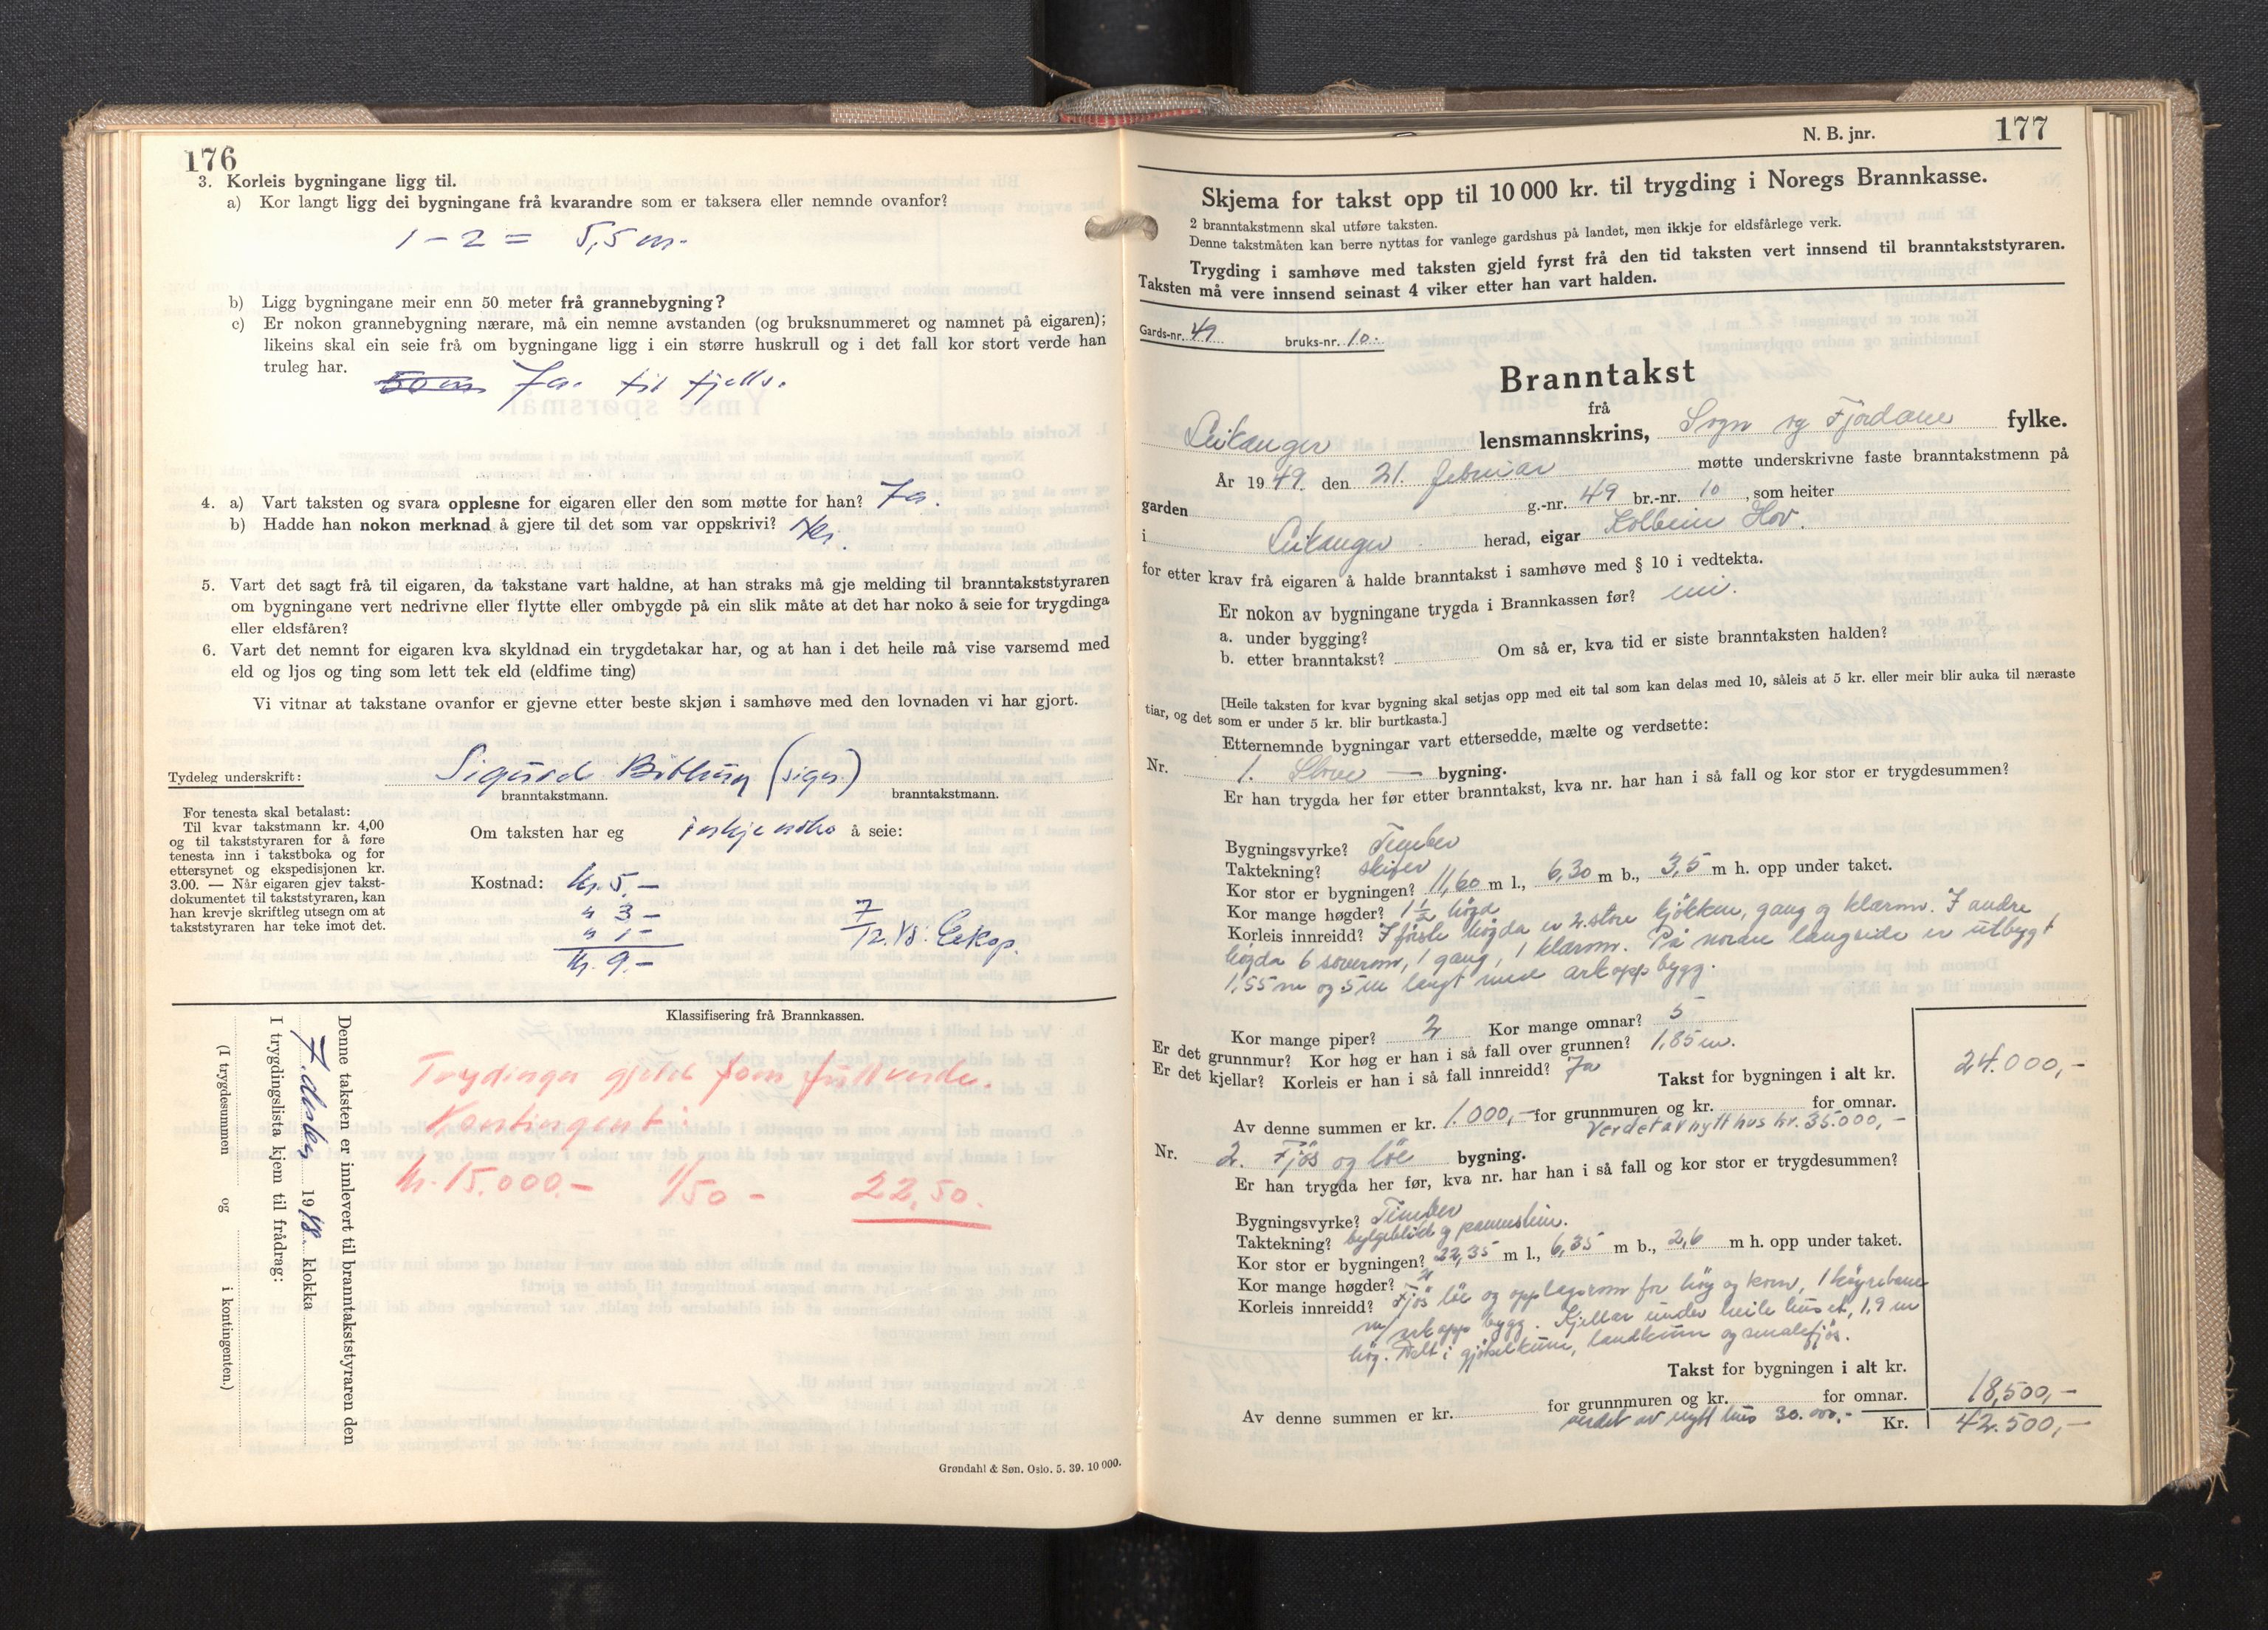 176
3. Korleis bygningane ligg til.
a) Kor langt ligg dei bygningane frå kvarandre som er taksera eller nemnde ovanfor?
1 – 2 = 5,5 m.
b) Ligg bygningane meir enn 50 meter frå grannebygning?
c) Er nokon grannebygning nærare, må ein nemne avstanden (og bruksnummeret og namnet på eigaren);
likeins skal ein seie frå om bygningane ligg i ein større huskrull og i det fall kor stort verde han
truleg har.
50 m Ja. til fjells.
4. a) Vart taksten og svara opplesne for eigaren eller den som møtte for han? Ja.
b) Hadde han nokon merknad å gjere til det som var oppskrivi? Nei.
5. Vart det sagt frå til eigaren, da takstane vart haldne, at han straks må gje melding til branntakststyraren
om bygningane vert nedrivne eller flytte eller ombygde på ein slik måte at det har noko å seie for trygdinga
eller eldsfåren?
6. Vart det nemnt for eigaren kva skyldnad ein trygdetakar har, og at han i det heile må vise varsemd med
eld og ljos og ting som lett tek eld (eldfime ting)
Vi vitnar at takstane ovanfor er gjevne etter beste skjøn i samhøve med den lovnaden vi har gjort.
Tydeleg underskrift: Sigurd (sign.)
branntakstmann. branntakstmann.
For tenesta skal betalast:
Til kvar takstmann kr. 4,00
og til takststyraren for å føre
tenesta inn i takstboka og for
ettersynet og ekspedisjonen kr.
3.00. — Når eigaren gjev takst-
dokumentet til takststyraren, kan
han krevje skriftleg utsegn om at
takststyraren har teke imot det.
Om taksten har eg inkje noko å seie:
Kostnad: kr. 5.–
" 3 –
" 1 –
kr. 9.–
7/12.48.
Klassifisering frå Brannkassen.
Trygdinga gjeld som fullverde.
Kontingent:
kr. 15.000.– 1/50 – 22,50.
Denne taksten er innlevert til branntakststyraren den
7. desbr. 1948. klokka
I trygdingslista kjem til frådrag:
(I trygdesummen og i kontingenten.)
Grøndahl & Søn. Oslo. 5. 39. 10 000.
N. B. jnr. 177
Skjema for takst opp til 10 000 kr. til trygding i Noregs Brannkasse.
2 branntakstmenn skal utføre taksten.
Denne takstmåten kan berre nyttas for vanlege gardshus på landet, men ikkje for eldsfårlege verk.
Trygding i samhøve med taksten gjeld fyrst frå den tid taksten vert innsend til branntakststyraren.
Taksten må vere innsend seinast 4 viker etter han vart halden.
Gards-nr. 49 bruks-nr. 10.
Branntakst
frå
Leikanger lensmannskrins, Sogn og Fjordane fylke.
År 1949. den 21. februar møtte underskrivne faste branntakstmenn på
garden g.-nr. 49 br.-nr. 10, som heiter
i Leikanger herad, eigar Kolbein Hov.
for etter krav frå eigaren å halde branntakst i samhøve med § 10 i vedtekta.
Er nokon av bygningane trygda i Brannkassen før? nei.
a. under bygging?
b. etter branntakst? Om så er, kva tid er siste branntaksten halden?
[Heile taksten for kvar bygning skal setjas opp med eit tal som kan delas med 10, såleis at 5 kr. eller meir blir auka til næraste
tiar, og det som er under 5 kr. blir burtkasta.]
Etternemnde bygningar vart ettersedde, mælte og verdsette:
Nr. 1. Stove — bygning.
Er han trygda her før etter branntakst, kva nr. har han i så fall og kor stor er trygdesummen?
Bygningsvyrke? Timber
Taktekning? skifer
Kor stor er bygningen? 11,60 m l., 6,30 m b., 3,5 m h. opp under taket.
Kor mange høgder? 1 1/2 høgd
Korleis innreidd? I første høgda er 2 stove kjøkken, gang og klærom. I andre
høgda 6 soverom, 1 gang, 1 klærom. På norare langside er utbygt
1,55 m og 5 m langt med arkoppbygg.
Kor mange piper? 2 Kor mange omnar? 5
Er det grunnmur? Kor høg er han i så fall over grunnen? 1,85 m.
Er det kjellar? Korleis er han i så fall innreidd? Ja
Takst for bygningen i alt kr. 24.000,–
Av denne summen er kr. 1.000,– for grunnmuren og kr. for omnar.
Verdet av nytt hus kr. 35.000,–
Nr. 2. Fjøs og løe bygning.
Er han trygda her før, kva nr. har han i så fall og kor stor er trygdesummen?
Bygningsvyrke? Timber
Taktekning? bylgeblikk og pannestein.
Kor stor er bygningen? 22,35 m l., 6,35 m b., 2,6 m h. opp under taket.
Kor mange høgder?
Korleis innreidd? Fjøs løe og opplagsrom for høy og korn, 1 køyrebane
m/ arkoppbygg. Kjellar under heile huset, 1,9 m
høg. Delt i gjødselkum, landkum og smalefjøs.
Takst for bygningen i alt kr. 18,500,–
Av denne summen er kr. for grunnmuren og kr. for omnar.
verdet av nytt hus 30.000,– Kr. 42.500,–